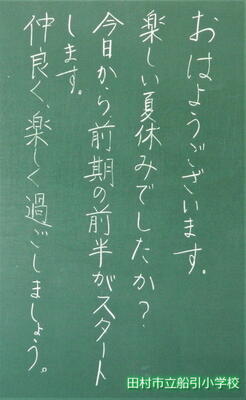 おはようございます。
楽しい夏休みでしたか？
今日から、前期の前半がスタート
します。
仲良く、楽しく過ごしましょう。
田村市立船引小学校